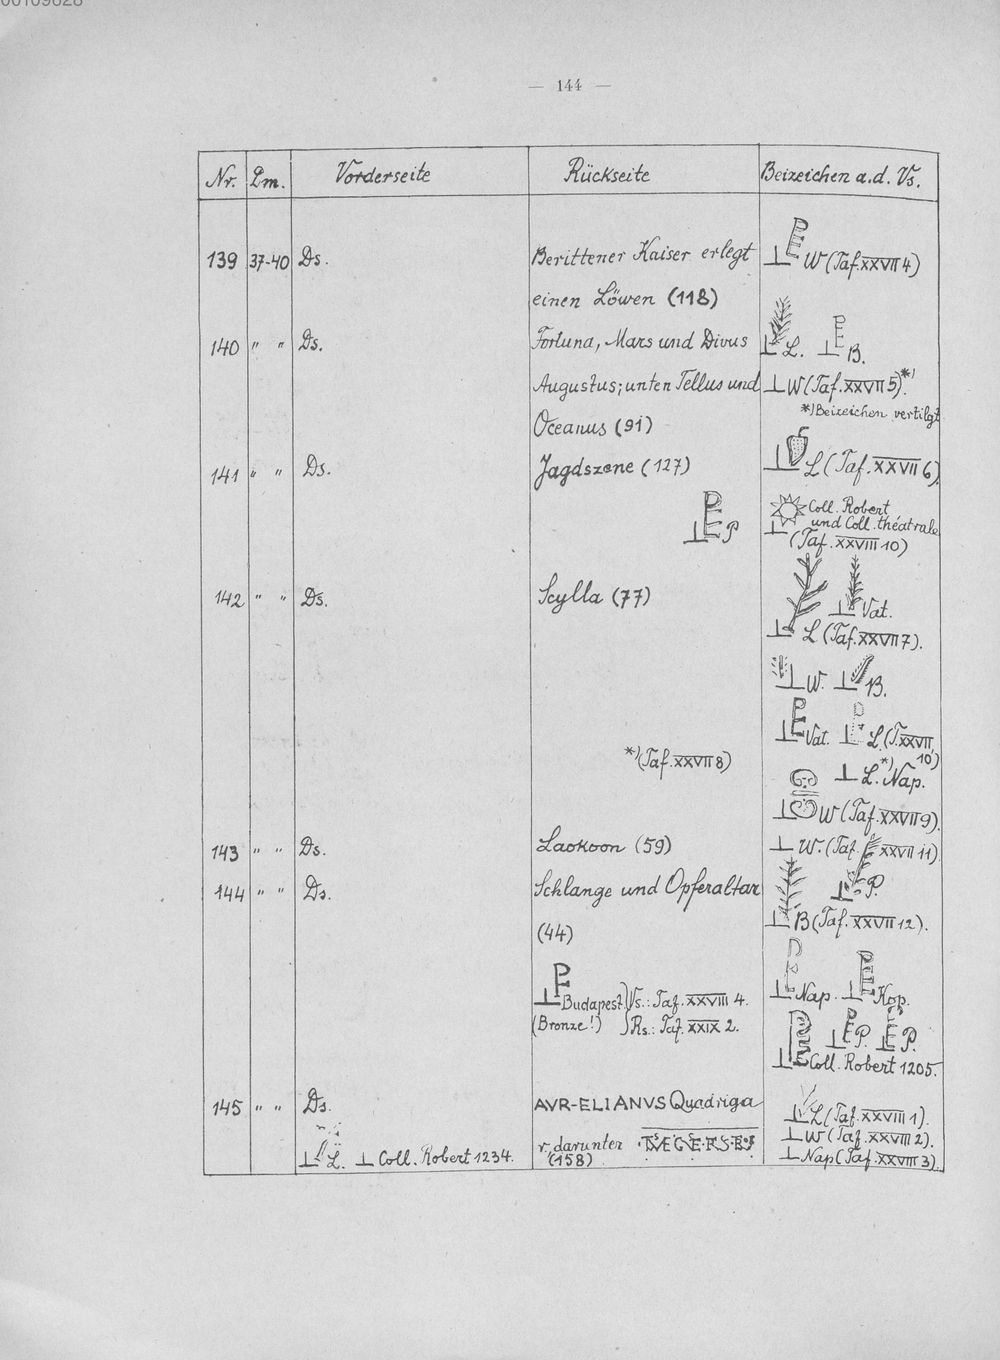 — 144 —
Nr. Dm. Vorderseite Rückseite Beizeichen a.d. Vs.
139 37-40 Ds. Berittener Kaiser erlegt ⊥ PE W (Taf. XXVII 4)
einen Löwen (118)
140 " " Ds. Fortuna, Mars und Divus ⊥ L. ⊥ PE B.
Augustus; unten Tellus und ⊥ W (Taf. XXVII 5).*)
*) Beizeichen vertilgt
Oceanus (91)
141 " " Ds. Jagdszene (127) ⊥ L (Taf. XXVII 6)
⊥ PE P Coll. Robert
und Coll. théatrale
⊥ (Taf. XXVIII 10)
142 " " Ds. Scylla (77) ⊥ Vat.
⊥ L (Taf. XXVII 7).
⊥ W. ⊥ B.
⊥ PE Vat. ⊥ L (T. XXVII,
10)
*) (Taf. XXVII 8) ⊥ L.*) Nap.
⊥ W (Taf. XXVII 9).
143 " " Ds. Laokoon (59) ⊥ W. (Taf. XXVII 11)
144 " " Ds. Schlange und Opferaltar ⊥ P.
(44) ⊥ B (Taf. XXVII 12).
⊥ Nap. ⊥ PE Kop.
⊥ PE Budapest Vs.: Taf. XXVIII 4.
(Bronze!) Rs.: Taf. XXIX 2.
⊥ PE P. ⊥ PE P.
⊥ PE Coll. Robert 1205.
145 " " Ds. AVR-ELIANVS Quadriga ⊥ L (Taf. XXVIII 1).
⊥ L. ⊥ Coll. Robert 1234. r., darunter ⊥ W (Taf. XXVIII 2).
(158) ⊥ Nap (Taf. XXVIII 3).